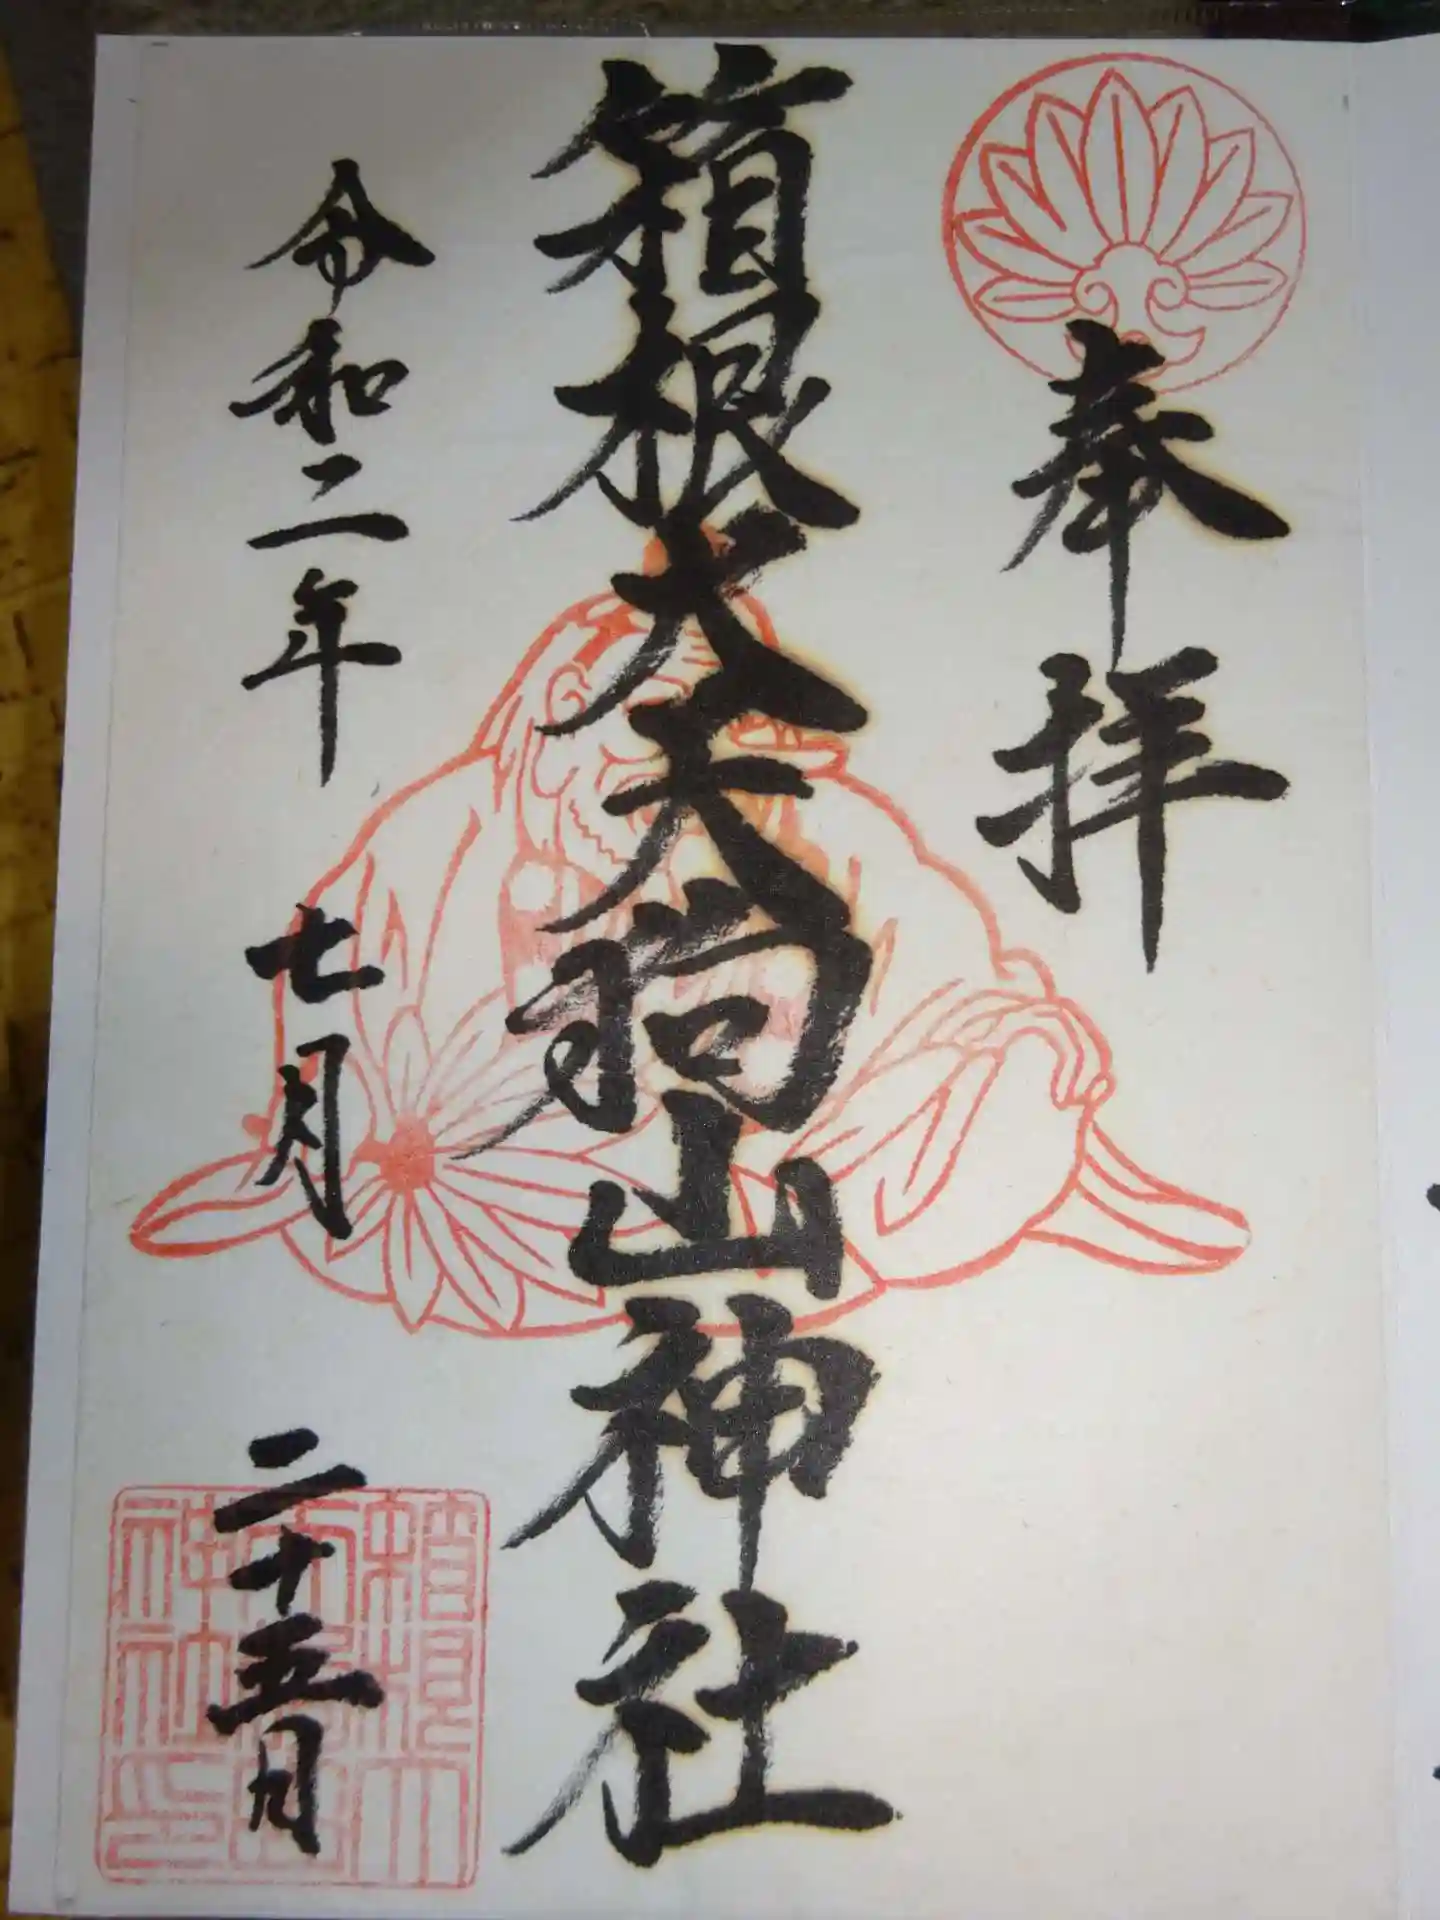 奉拝
箱根大天狗山神社
令和二年 七月 二十五日
箱根大
天狗山
神社印